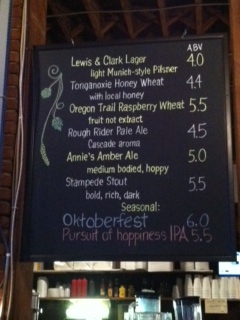 ABV
Lewis & Clark Lager 4.0
light Munich-style Pilsner
Tonganoxie Honey Wheat 4.4
with local honey
Oregon Trail Raspberry Wheat 5.5
fruit not extract
Rough Rider Pale Ale 4.5
Cascade aroma
Annie's Amber Ale 5.0
medium bodied, hoppy
Stampede Stout 5.5
bold, rich, dark
Seasonal:
Oktoberfest 6.0
Pursuit of hoppiness IPA 5.5